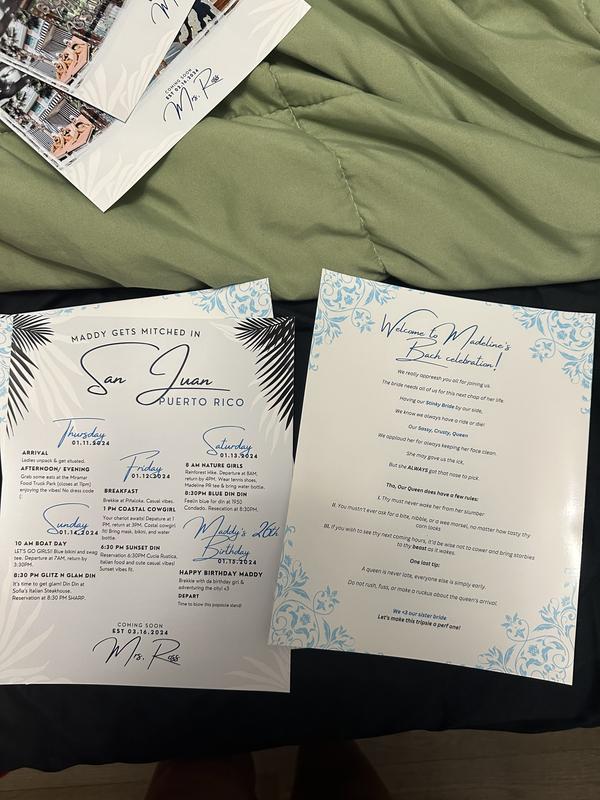 COMING SOON
EST 03.16.2024
Mrs. Ross
MADDY GETS MITCHED IN
San Juan
PUERTO RICO
Thursday
01.11.2024
ARRIVAL
Ladies unpack & get situated.
AFTERNOON/ EVENING
Grab some eats at the Miramar
Food Truck Park (closes at 11pm)
enjoying the vibes! No dress code
(:
Friday
01.12.2024
BREAKFAST
Brekkie at Piñaloka. Casual vibes.
1 PM COASTAL COWGIRL
Your chariot awaits! Depature at 1
PM, return at 3PM. Coastal cowgirl
fit! Bring mask, bikini, and water
bottle.
6:30 PM SUNSET DIN
Reservation 6:30PM Cucia Rustica,
Italian food and cute casual bites!
Sunset vibes fit.
Saturday
01.13.2024
8 AM NATURE GIRLS
Rainforest Hike. Departure at 8AM,
return by 4PM. Wear tennis shoes,
Madeline PR tee & bring water bottle.
8:30PM BLUE DIN DIN
Feelin blue for din at 1950
Condado. Reservation at 8:30PM.
Sunday
01.14.2024
10 AM BOAT DAY
LET'S GO GIRLS! Blue bikini and swag
tee. Departure at 7AM, return by
3:30PM.
8:30 PM GLITZ N GLAM DIN
It's time to get glam! Din Din at
Sofia's Italian Steakhouse.
Reservation at 8:30 PM SHARP.
Maddy's 26th
Birthday
01.15.2024
HAPPY BIRTHDAY MADDY
Brekkie with da birthday girl &
adventuring the city! <3
DEPART
Time to blow this popsicle stand!
COMING SOON
EST 03.16.2024
Mrs. Ross
Welcome to Madeline's
Bach celebration!
We really appreesh you all for joining us.
The bride needs all of us for this next chap of her life.
Having our Stinky Bride by our side,
We know we always have a ride or die!
Our Sassy, Crusty, Queen
We applaud her for always keeping her face clean.
She may gave us the ick,
But she ALWAYS got that nose to pick.
Tho, Our Queen does have a few rules:
I. Thy must never wake her from her slumber
II. You mustn't ever ask for a bite, nibble, or a wee morsel, no matter how tasty thy
corn looks
III. If you wish to see thy next coming hours, it'd be wise not to cower and bring starbies
to thy beast as it wakes.
One last tip:
A queen is never late, everyone else is simply early.
Do not rush, fuss, or make a ruckus about the queen's arrival.
We <3 our sister bride
Let's make this tripsie a perf one!